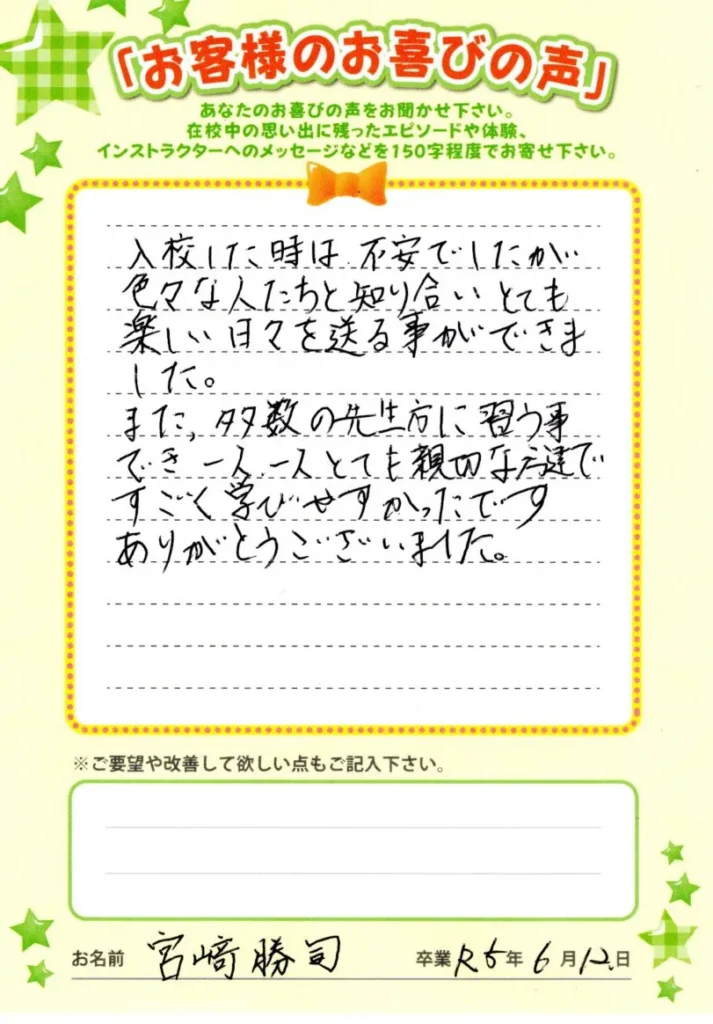 「お客様のお喜びの声」
あなたのお喜びの声をお聞かせ下さい。
在校中の思い出に残ったエピソードや体験、
インストラクターへのメッセージなどを150字程度でお寄せ下さい。
入校した時は不安でしたが
色々な人たちと知り合いとても
楽しい日々を送る事ができま
した。
また、多数の先生方に習う事
でき一人一人とても親切な方達で
すごく学びやすかったです
ありがとうございました。
※ご要望や改善して欲しい点もご記入下さい。
お名前 宮﨑勝司 卒業R5年6月12日